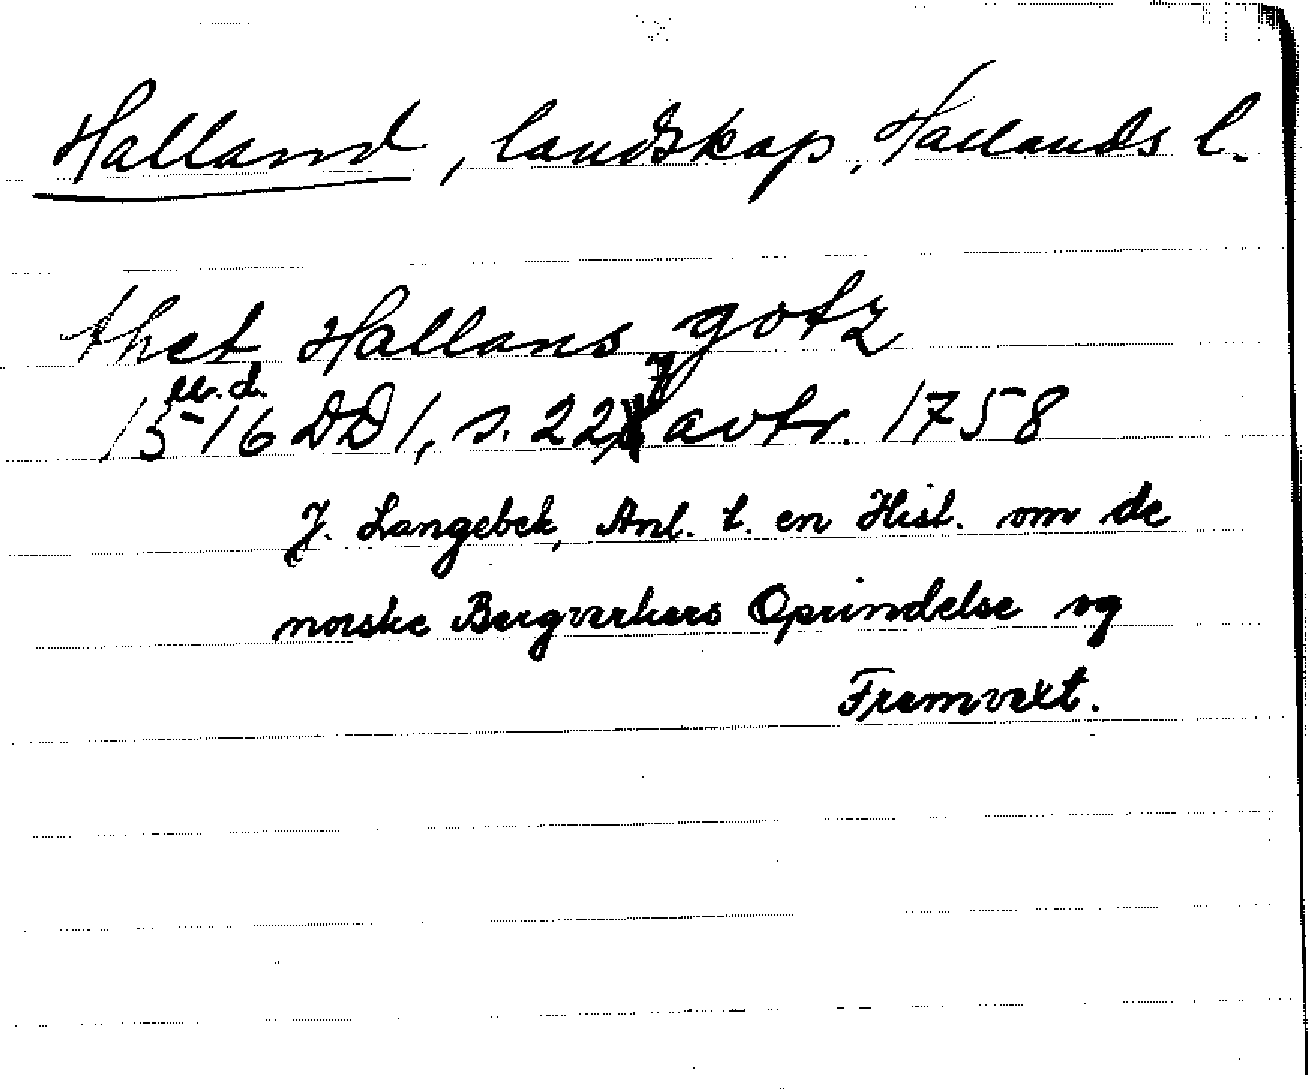 Halland, landskap, Hallands l.
thet Hallans gotz
u.d.
1516 DD 1, s. 227 avtr. 1758
J. Langebek, Anl. t. en Hist. om de
norske Bergverkers Oprindelse og
Fremvext.